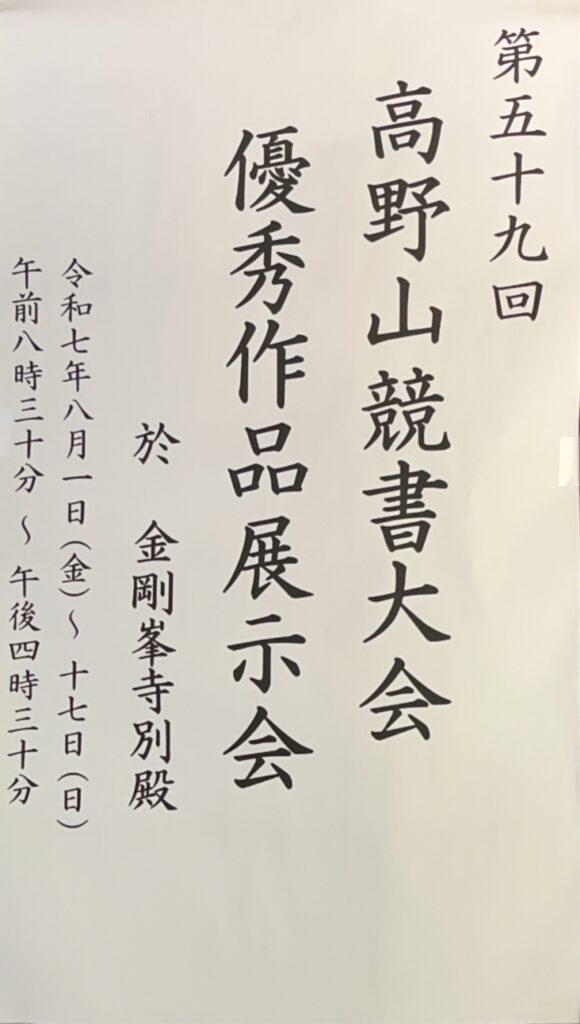 第五十九回
高野山競書大会
優秀作品展示会
於 金剛峯寺別殿
令和七年八月一日(金)～十七日(日)
午前八時三十分～午後四時三十分